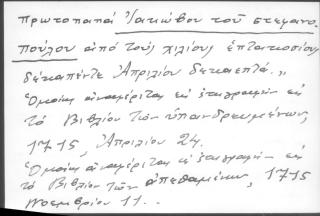 Πρωτοπαπά Ἰακώβου τοῦ Στεφανο-
πούλου ἀπό τούς χιλίους ἑπτακοσίους
δεκαπέντε Ἀπριλίου δεκαεπτά.,,
Ὁμοίως ἀναφέρεται καὶ ἐγγραφὴ εἰς
τό Βιβλίον τῶν ὑπανδρευμένων,
1715, Ἀπριλίου 24.
Ὁμοίως ἀναφέρεται καὶ ἐγγραφὴ εἰς
τό Βιβλίον τῶν ἀπεθαμένων, 1715
Νοεμβρίου 11..